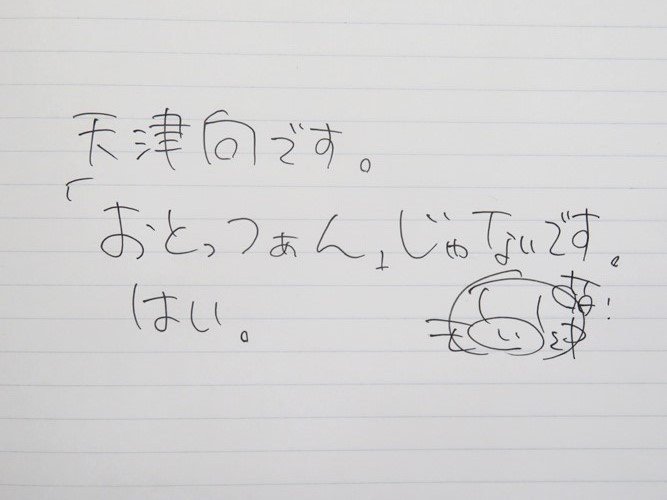 天津向です。
「おとっつぁん」じゃないです。
はい。